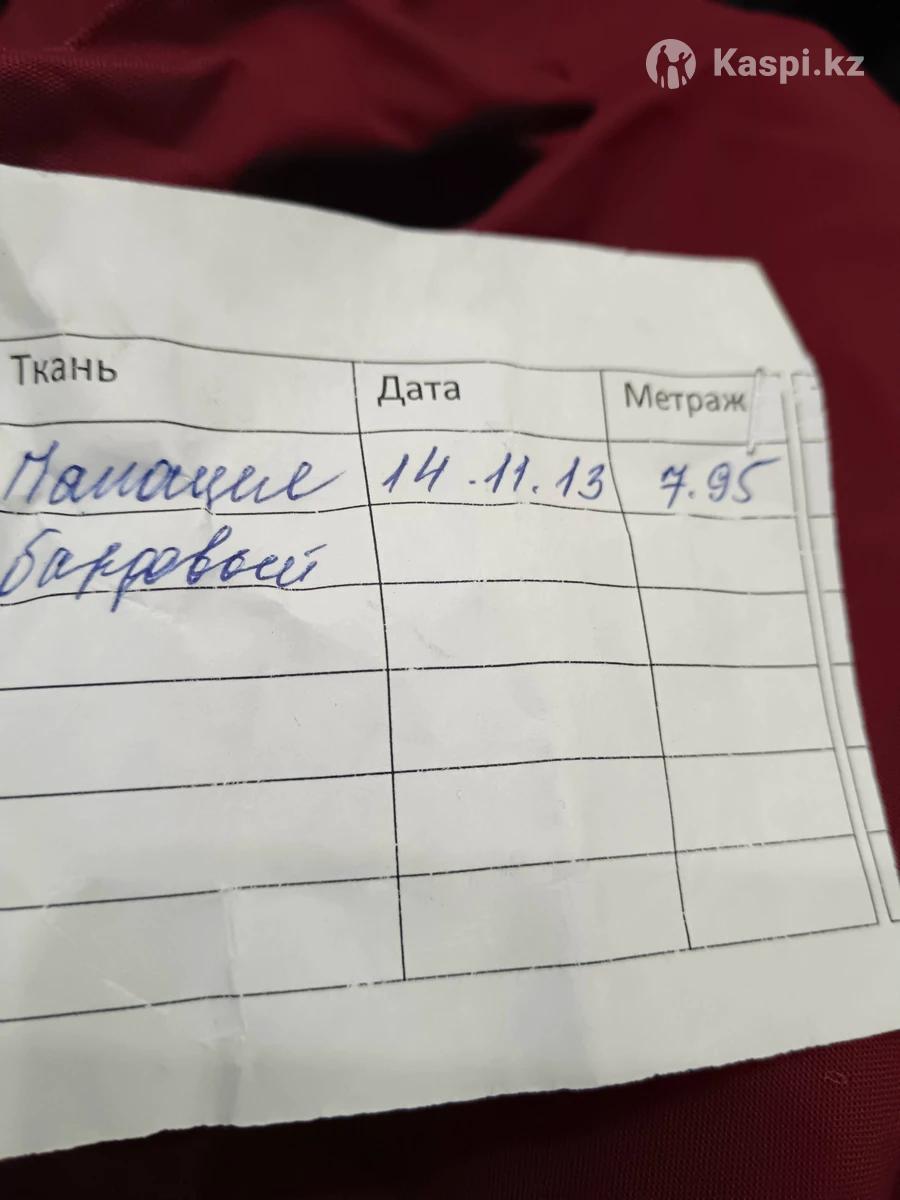 Kaspi.kz
Ткань Дата Метраж
14.11.13 7.95
бардовый